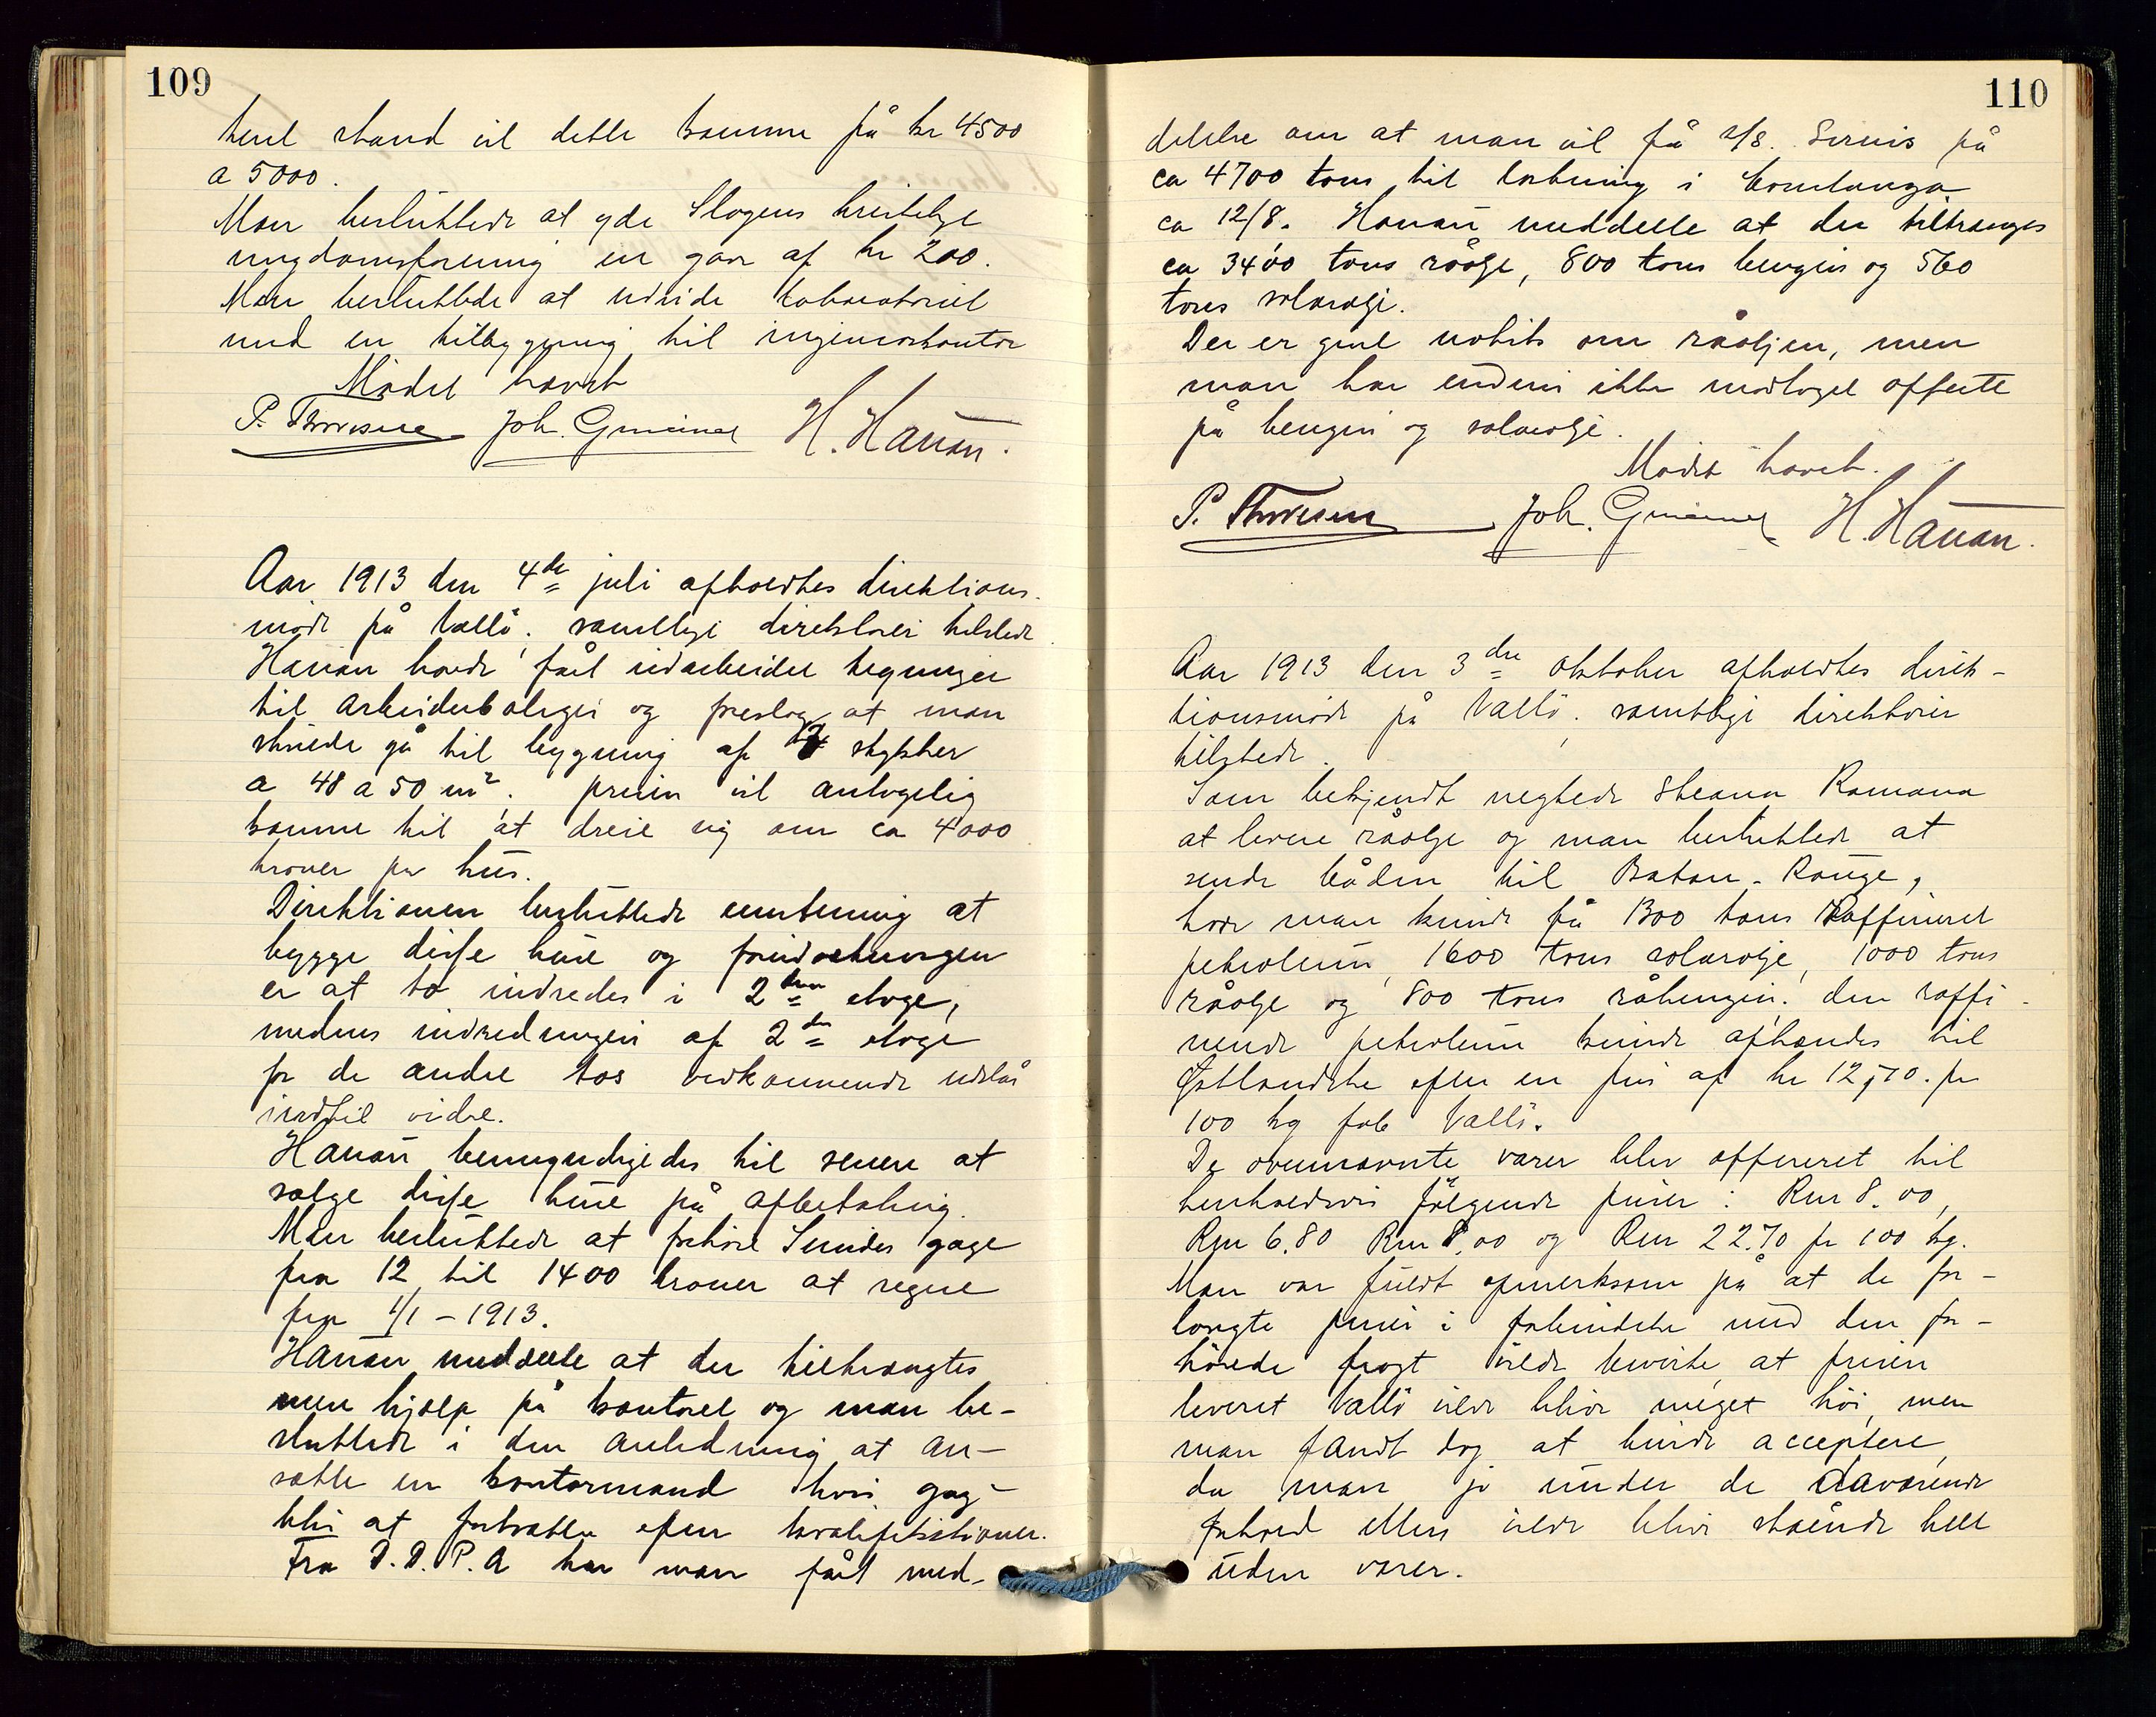 109
hent stand vil dette komme på kr 4500
a 5000.
Man besluttede at yde Slagens kristelige
ungdomsforening en gave af kr 200.
Man besluttede at udvide laboratoriet
med en tilbygning til ingeniørkontor
Mødet hævet
P. Thoresen Joh. H. Hauan.
Aar 1913 den 4de juli afholdtes direktions-
møde på Vallö. samtlige direktører tilstede.
Hauan havde fået udarbeidet tegninger
til Arbeiderboliger og foreslog at man
skulde gå til bygning af stykker
a 48 a 50 m2. prisen vil antagelig
komme til at dreie sig om ca 4000
kroner pr hus.
Direktionen besluttede enstemmig at
bygge disse huse og forudsetningen
er at to indredes i 2den etage,
medens indredningen af 2den etage
for de andre tos vedkommende udstår
indtil videre.
Hauan bemyndigedes til senere at
sælge disse huse på afbetaling.
Man besluttede at forhøie Smides gage
fra 12 til 1400 kroner at regne
fra 1/1 - 1913.
Hauan meddelte at der tiltrængtes
mere hjælp på kontoret og man be-
sluttede i den anledning at an-
sætte en kontormand hvis gage
blir at fastsætte efter kvalifikationer.
Fra D.D.P.A har man fået med-
110
delelse om at man vil få s/s. Servis på
ca 4700 tons til lastning i Constanza
ca 12/8. Hauan meddelte at der tiltrænges
ca 3400 tons råolje, 800 tons bengin og 560
tons solarolje.
Der er givet notits om råoljen, men
man har endnu ikke modtaget offerte
på bengin og solarolje.
Mødet hævet.
P. Thoresen Joh. H. Hauan.
Aar 1913 den 3die oktober afholdtes direk-
tionsmøde på Vallö. samtlige direktører
tilstede.
Som bekjendt negtede Steaua Romana
at levere råolje og man besluttede at
sende båden til Baton-Rouge,
hvor man kunde få 1300 tons Raffineret
petroleum, 1600 tons solarolje, 1000 tons
råolje og 800 tons råbengin. den raffi-
nerede petroleum kunde afhændes til
Østlandske efter en pris af kr 12,70. pr
100 kg fob Vallö.
De ovennævnte varer blev offereret til
henholdsvis følgende priser: Rm 8.00,
Rm 6.80 Rm 8.00 og Rm 22.70 pr 100 kg.
Man var fuldt opmerksom på at de for-
langte priser i forbindelse med den for-
høiede fragt vilde bevirke at prisen
leveret Vallö vilde blive meget høi, men
man fandt dog at burde acceptere,
da man jo under de daværende
forhold ellers vilde blive stående helt
uden varer.